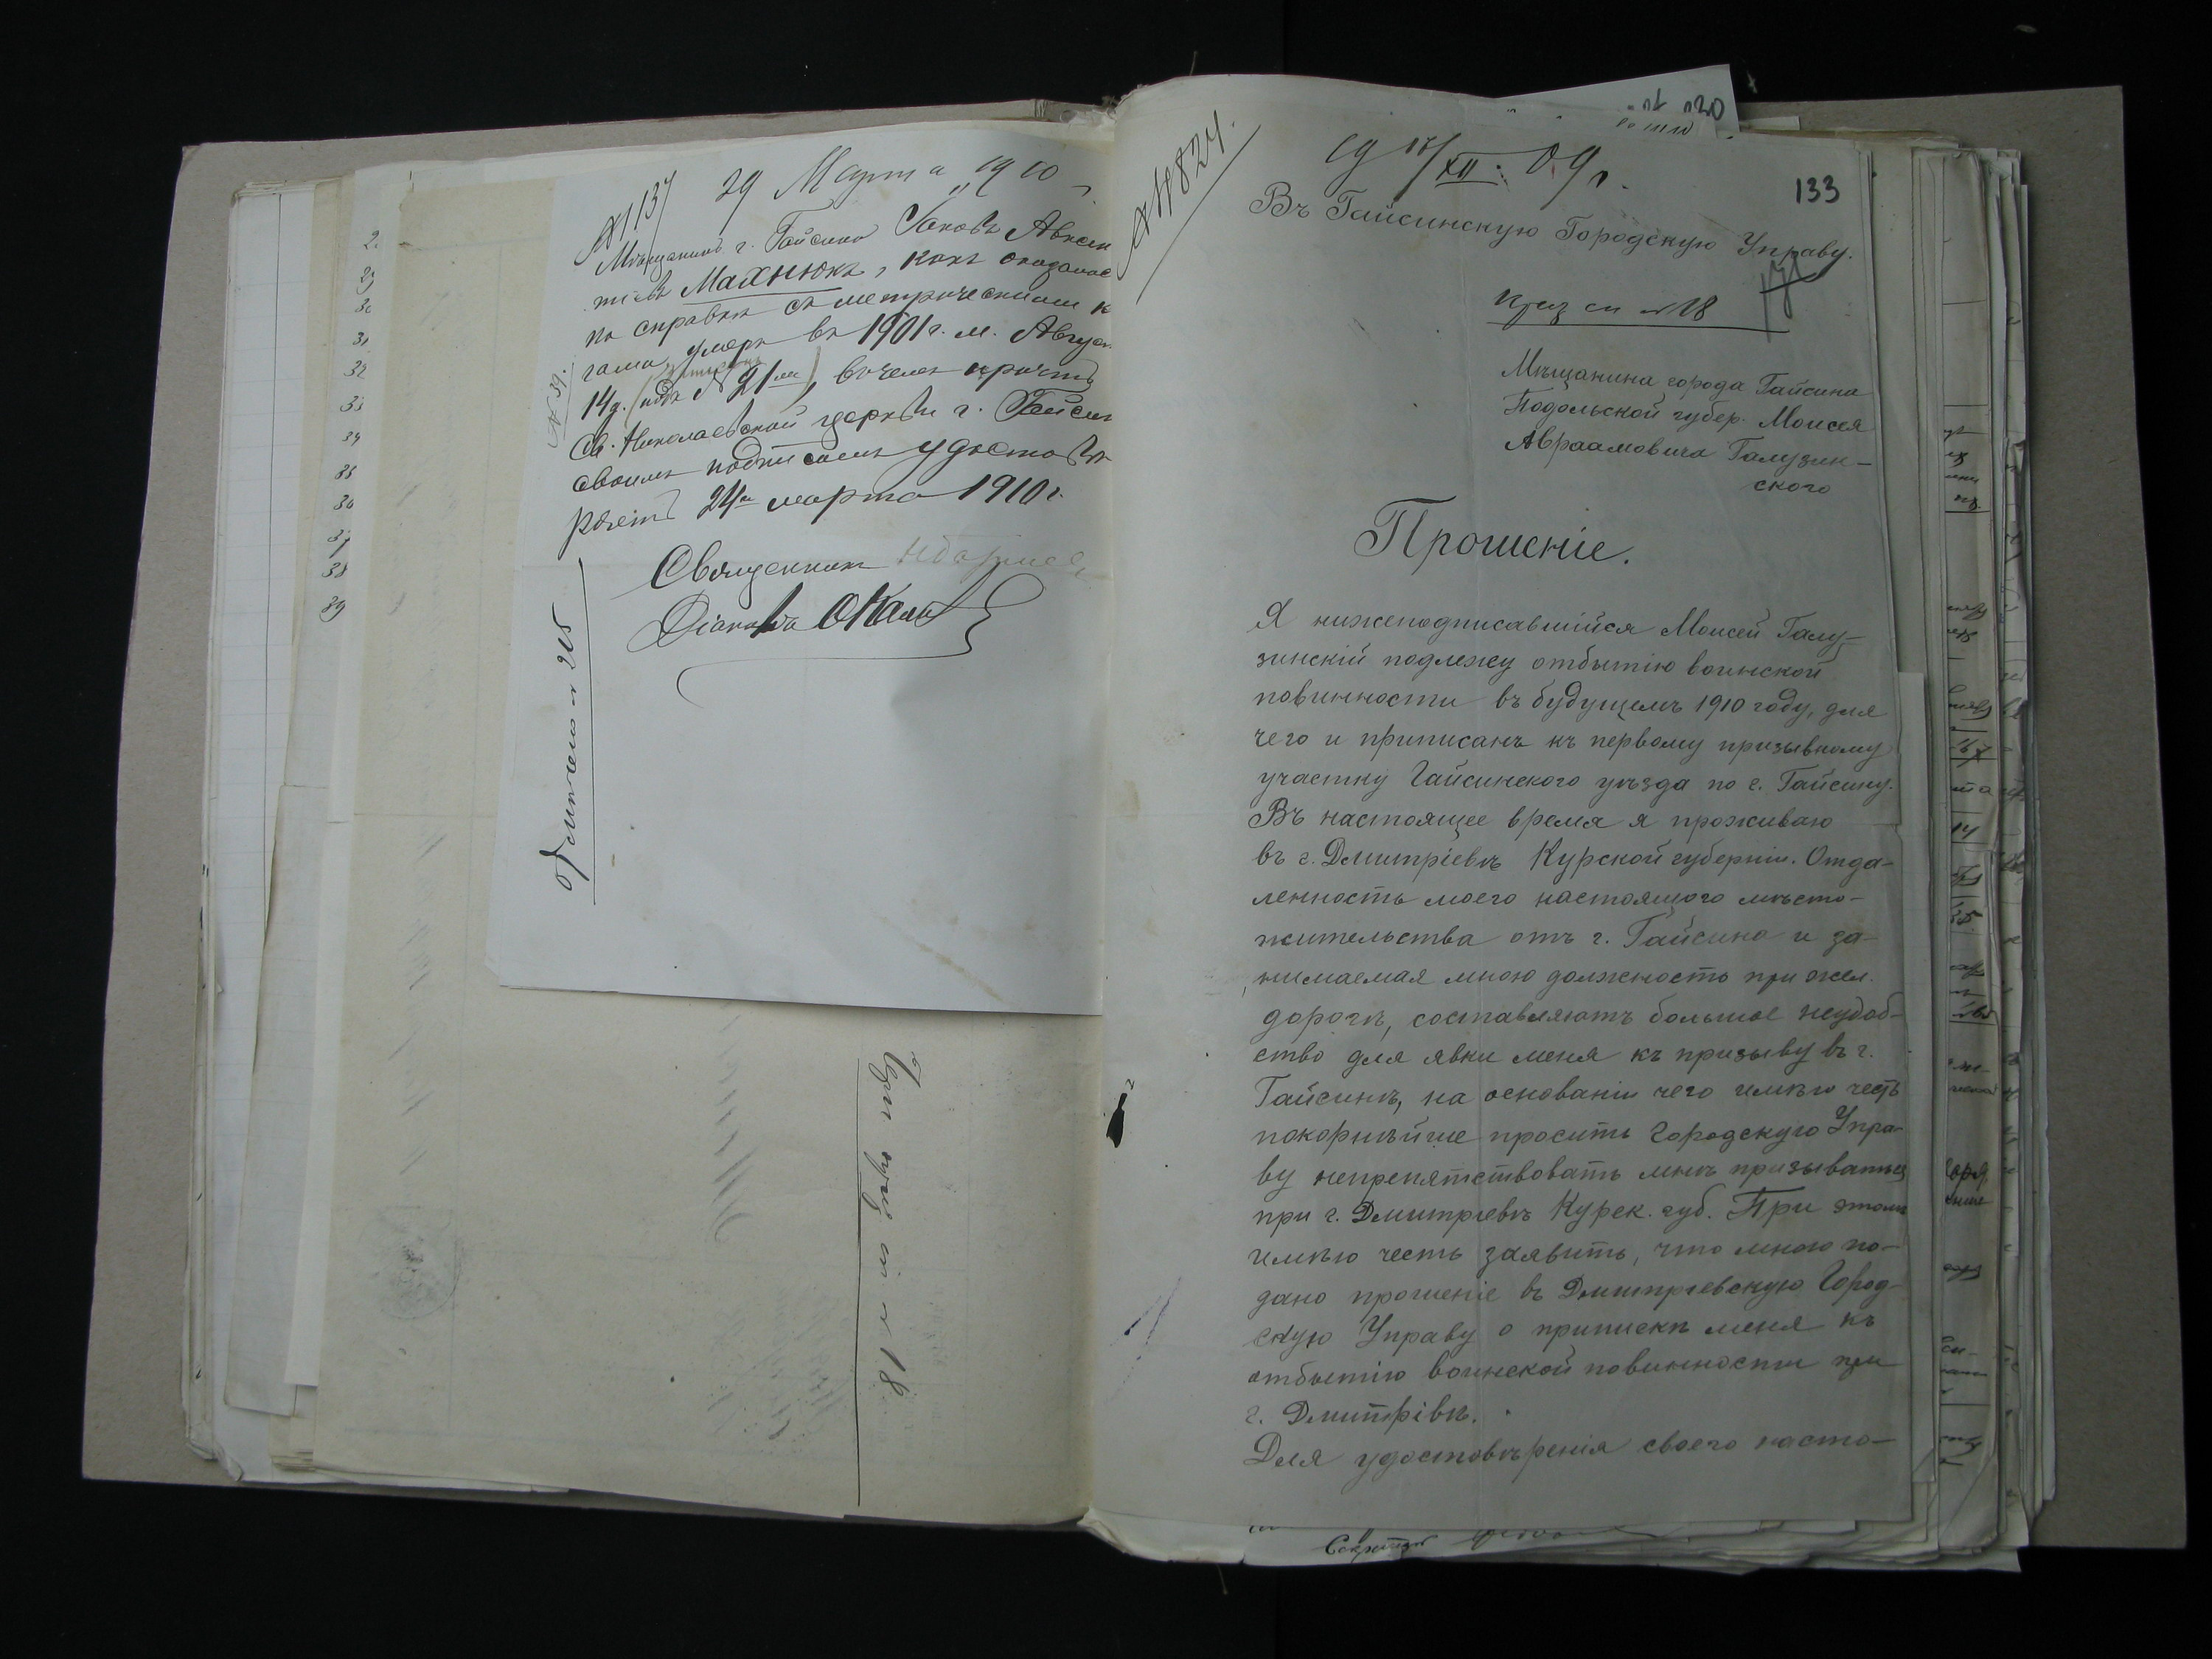 29 Марта 1910
№ 1137
Мѣщанинъ г. Гайсина Яковъ Авксен
тіевъ Махнюкъ, какъ оказалос
по справкѣ съ метрическими к
гами, умеръ въ 1901 г. м. Авгус
14 д. подъ № 21мъ, въ чемъ причтъ
Св. Николаевской церкви г. Гайсин
своимъ подписомъ удостовѣ
ряетъ 24 марта 1910 г.
Священникъ
Діаконъ
№ 39.
№ 18
29
30
31
32
33
34
35
36
37
38
39
№ 4824.
XII 09 г.
133
Въ Гайсинскую Городскую Управу.
№ 18
Мѣщанина города Гайсина
Подольской губер. Моисея
Авраамовича Галузин-
ского
Прошеніе.
Я нижеподписавшійся Моисей Галу-
зинскій подлежу отбытію воинской
повинности въ будущемъ 1910 году, для
чего и приписанъ къ первому призывному
участку Гайсинского уѣзда по г. Гайсину.
Въ настоящее время я проживаю
въ г. Дмитріевѣ Курской губерніи. Отда-
ленность моего настоящого мѣсто-
жительства отъ г. Гайсина и за-
нимаемая мною должность при жел.
дорогѣ, составляютъ большое неудоб-
ство для явки меня къ призыву въ г.
Гайсинѣ, на основаніи чего имѣю честь
покорнѣйше просить Городскую Упра-
ву непрепятствовать мнѣ призываться
при г. Дмитріевѣ Курск. губ. При этомъ
имѣю честь заявить, что мною по-
дано прошеніе въ Дмитріевскую Город-
скую Управу о припискѣ меня къ
отбытію воинской повинности при
г. Дмитрівѣ.
Для удостовѣренія своего насто-